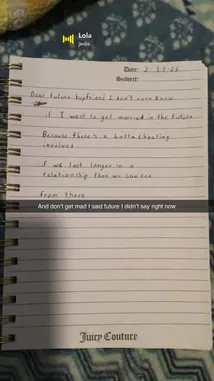 Lola
jedia
Date: 2 13-26
Subject:
Dear future boyfriend I don't even know
if I want to get married in the future
Because there's a Lotta cheating
involved
if we last longer in a
relationship then we Can see
from there
And don't get mad I said future I didn't say right now
Juicy Couture